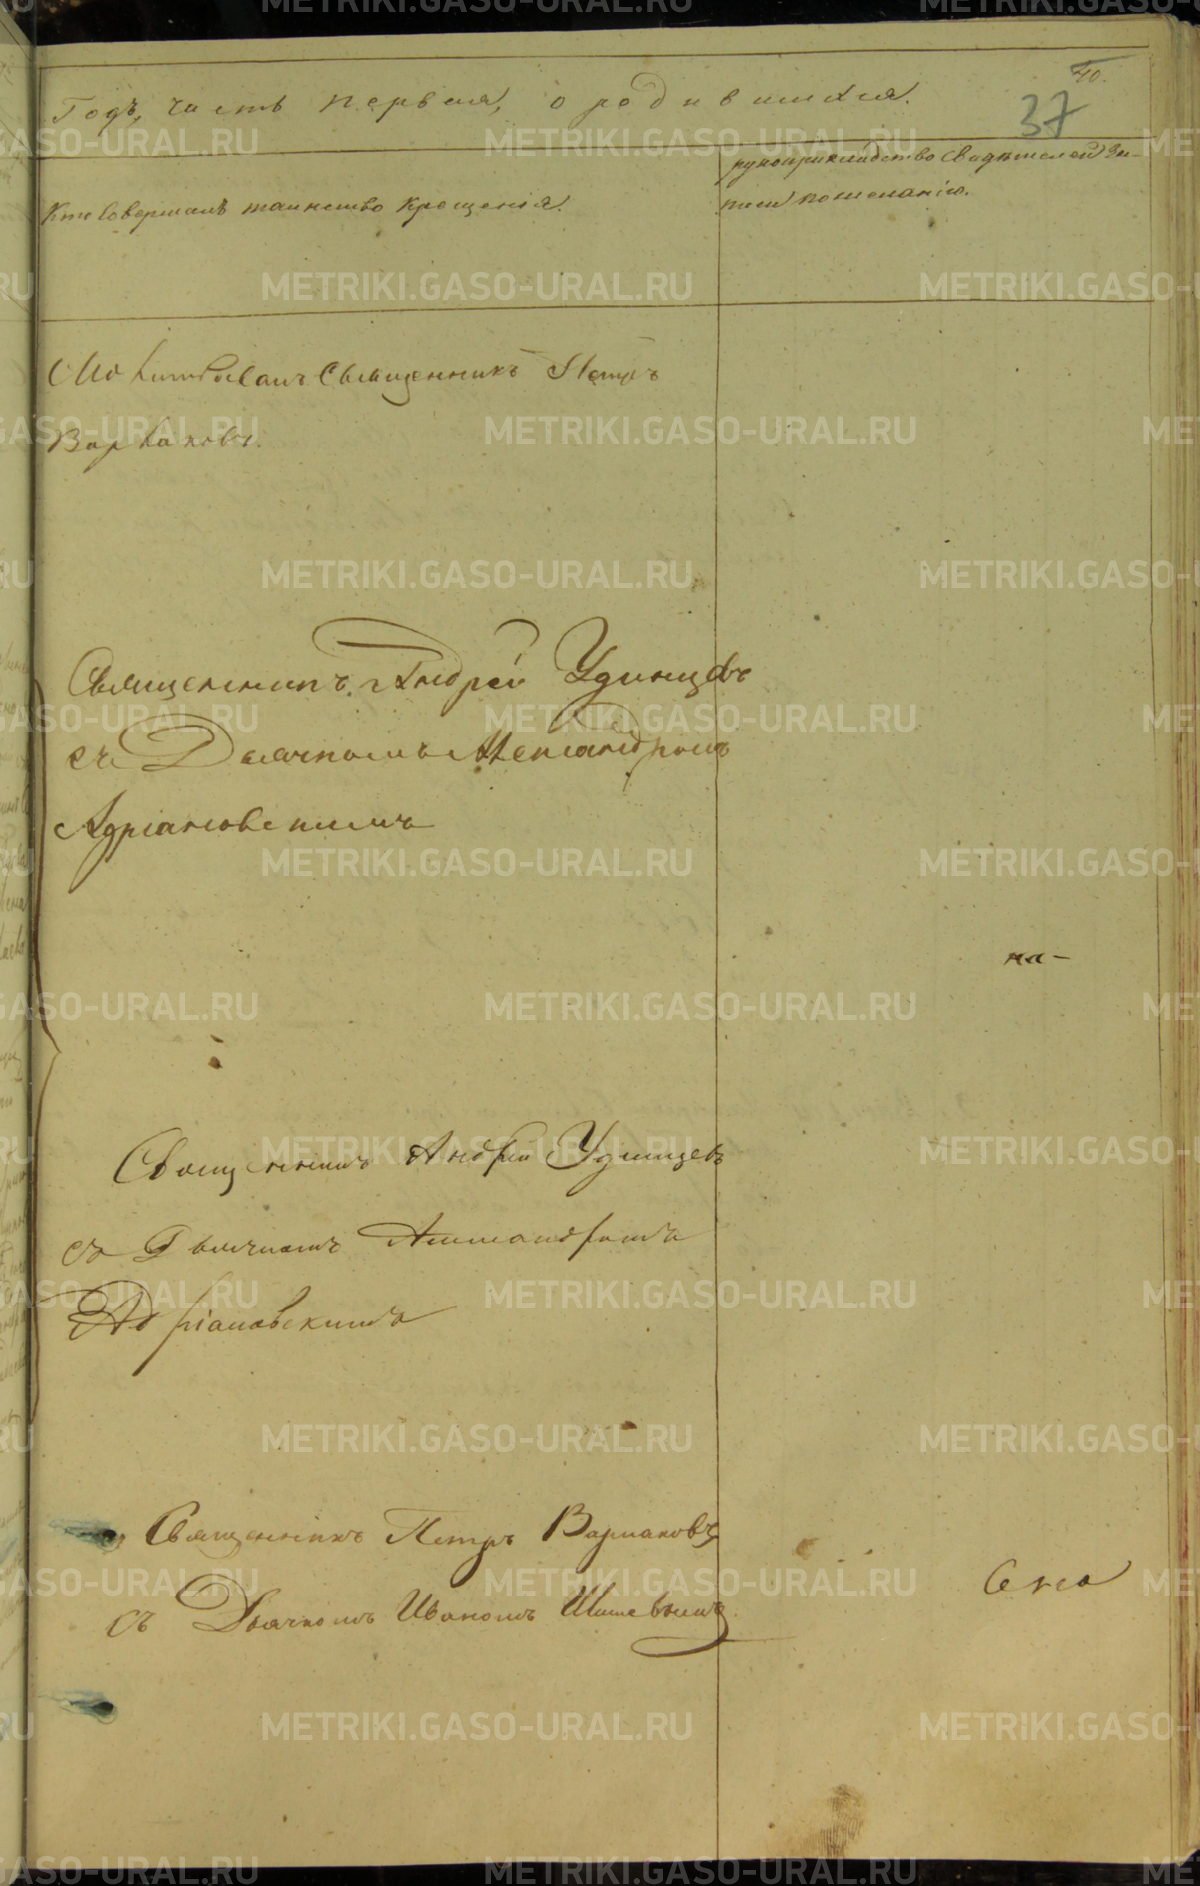 40.
37
Годъ, часть первая, о родившихся.
Кто совершалъ таинство крещенія.
рукоприкладство свидѣтелей за-
писи по желанію.
Молитвовалъ Священникъ Петръ
Варнаковъ.
Священникъ Андрей Удинцовъ
съ Дьячкомъ Александромъ
Адріановскимъ
на-
Священникъ Андрей Удинцевъ
съ Дьячкомъ Александромъ
Адріановскимъ
Священникъ Петръ Варнаковъ
съ Дьячкомъ Иваномъ
METRIKI.GASO-URAL.RU